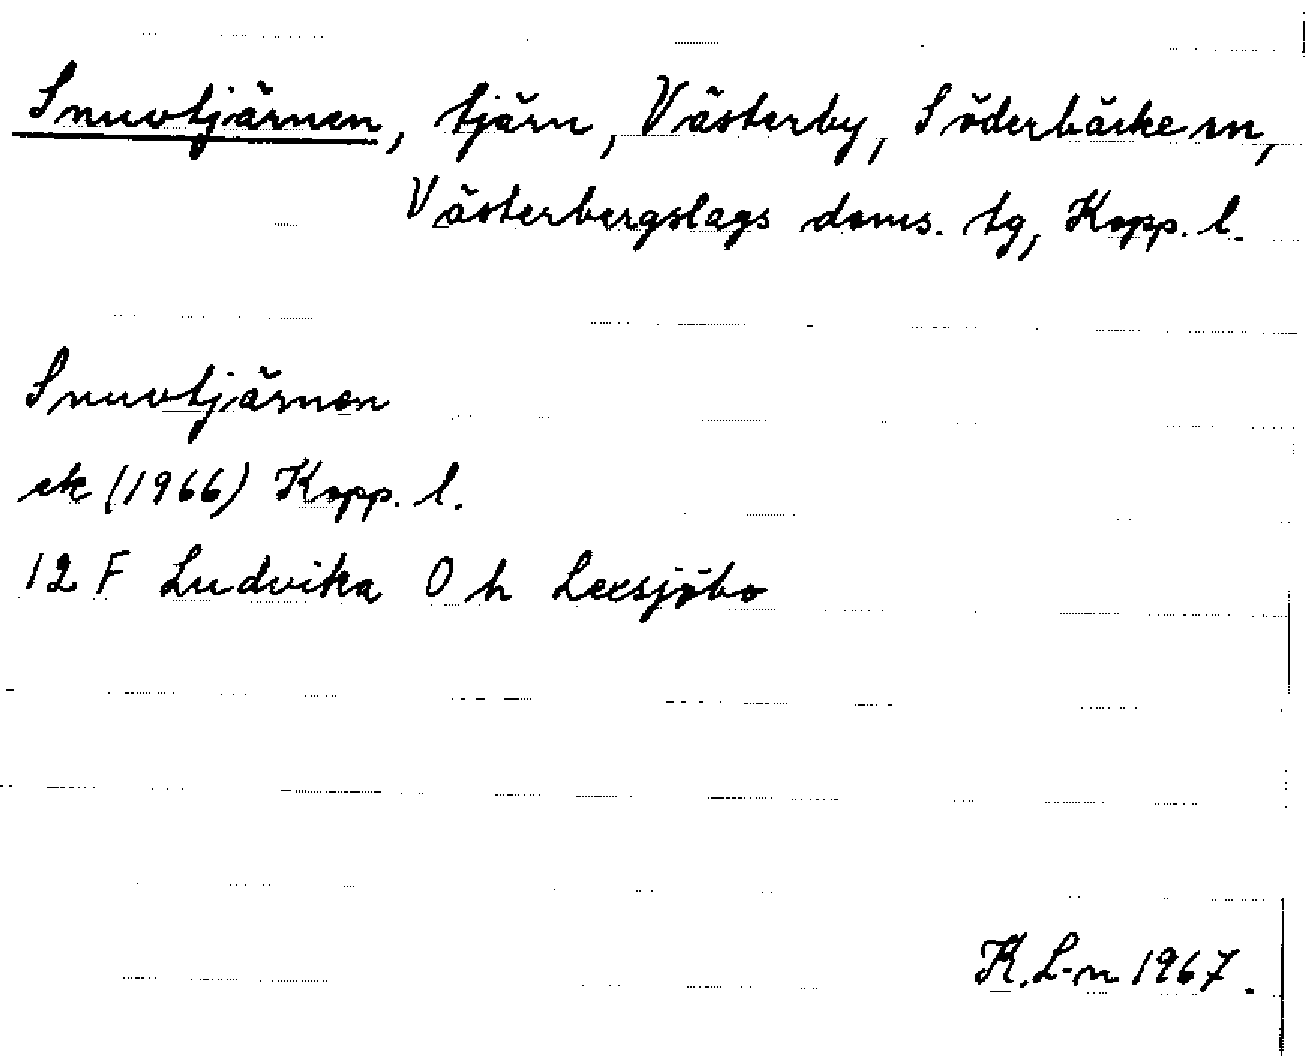 Snuvtjärnen, tjärn, Västerby, Söderbärke sn,
Västerbergslags doms. tg, Kopp. l.
Snuvtjärnen
ek (1966) Kopp. l.
12 F Ludvika 0 h Leksjöbo
K. L-n 1967.